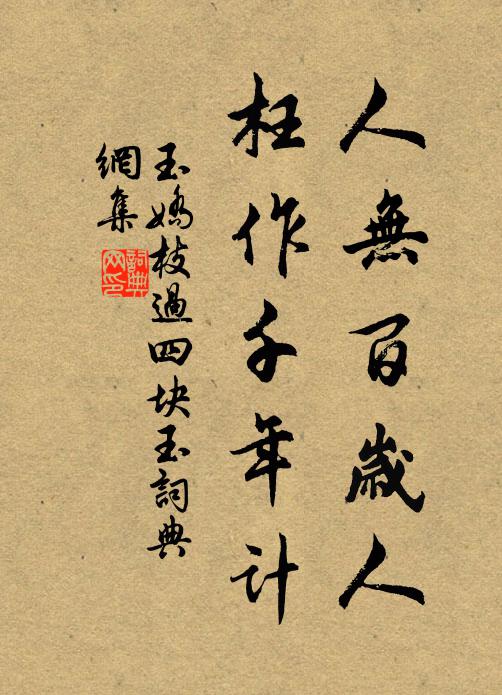 人無百歲人
枉作千年計
玉嬌枝過四块玉詞典
網集
詞典
网印